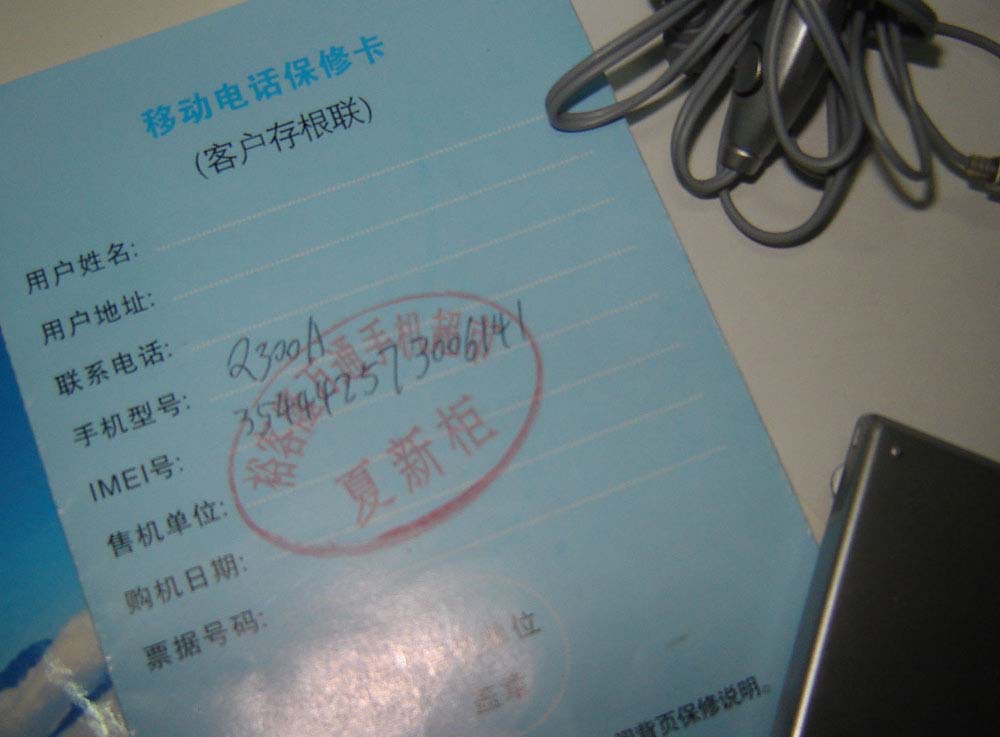 移动电话保修卡
(客户存根联)
用户姓名:
用户地址:
联系电话:
手机型号: 2300A
IMEI号: 354442573006141
售机单位:
购机日期:
票据号码:
手机超
夏新柜
位
盖章
背页保修说明。